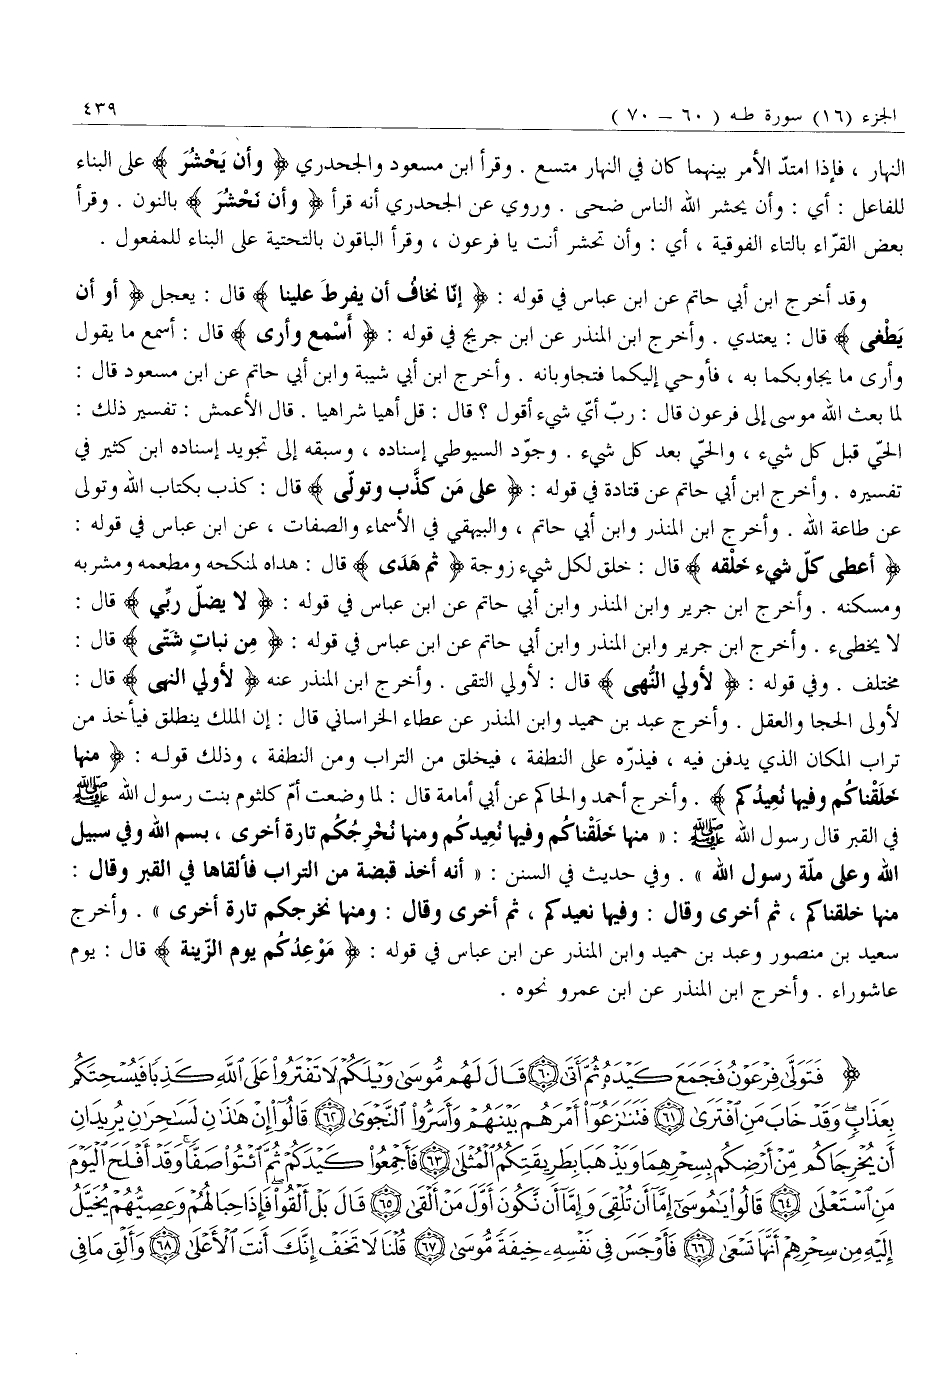 الجزء (١٦) سورة طه ( ٦٠ – ٧٠ )
٤٣٩
النهار ، فإذا امتدّ الأمر بينهما كان في النهار متسع . وقرأ ابن مسعود والجحدري ﴿ وأن يَحْشُرَ ﴾ على البناء
للفاعل : أي : وأن يحشر الله الناس ضحى . وروي عن الجحدري أنه قرأ ﴿ وأن نَحْشُرَ ﴾ بالنون . وقرأ
بعض القرّاء بالتاء الفوقية ، أي : وأن تحشر أنت يا فرعون ، وقرأ الباقون بالتحتية على البناء للمفعول .
وقد أخرج ابن أبي حاتم عن ابن عباس في قوله : ﴿ إنّا نخافُ أن يفرطَ علينا ﴾ قال : يعجل ﴿ أو أن
يَطْغى ﴾ قال : يعتدي . وأخرج ابن المنذر عن ابن جريج في قوله : ﴿ أَسْمع وأرى ﴾ قال : أسمع ما يقول
وأرى ما يجاوبكما به ، فأوحي إليكما فتجاوبانه . وأخرج ابن أبي شيبة وابن أبي حاتم عن ابن مسعود قال :
لما بعث الله موسى إلى فرعون قال : ربّ أيّ شيء أقول ؟ قال : قل أهيا شراهيا . قال الأعمش : تفسير ذلك :
الحيّ قبل كل شيء ، والحيّ بعد كل شيء . وجوّد السيوطي إسناده ، وسبقه إلى تجويد إسناده ابن كثير في
تفسيره . وأخرج ابن أبي حاتم عن قتادة في قوله : ﴿ على مَن كذَّب وتولّى ﴾ قال : كذب بكتاب الله وتولى
عن طاعة الله . وأخرج ابن المنذر وابن أبي حاتم ، والبيهقي في الأسماء والصفات ، عن ابن عباس في قوله :
﴿ أعطى كلّ شيء خَلْقه ﴾ قال : خلق لكل شيء زوجة ﴿ ثم هَدَى ﴾ قال : هداه لمنكحه ومطعمه ومشربه
ومسكنه . وأخرج ابن جرير وابن المنذر وابن أبي حاتم عن ابن عباس في قوله : ﴿ لا يضلّ ربِّي ﴾ قال :
لا يخطىء . وأخرج ابن جرير وابن المنذر وابن أبي حاتم عن ابن عباس في قوله : ﴿ مِن نباتٍ شتّى ﴾ قال :
مختلف . وفي قوله : ﴿ لأولي النُّهى ﴾ قال : لأولي التقى . وأخرج ابن المنذر عنه ﴿ لأولي النهى ﴾ قال :
لأولى الحجا والعقل . وأخرج عبد بن حميد وابن المنذر عن عطاء الخراساني قال : إن الملك ينطلق فيأخذ من
تراب المكان الذي يدفن فيه ، فيذرّه على النطفة ، فيخلق من التراب ومن النطفة ، وذلك قولـه : ﴿ منها
خلَقْناكُم وفيها نُعيدُكم ﴾ . وأخرج أحمد والحاكم عن أبي أمامة قال : لما وضعت أمّ كلثوم بنت رسول الله ﷺ
في القبر قال رسول الله ﷺ : « منها خلَقْناكُم وفيها نُعيدكُم ومنها نُخْرِجُكُم تارة أخرى ، بسم الله وفي سبيل
الله وعلى ملّة رسول الله » . وفي حديث في السنن : « أنه أخذ قبضة من التراب فألقاها في القبر وقال :
منها خلقناكم ، ثم أخرى وقال : وفيها نعيدكم ، ثم أخرى وقال : ومنها نخرجكم تارة أخرى » . وأخرج
سعيد بن منصور وعبد بن حميد وابن المنذر عن ابن عباس في قوله : ﴿ مَوْعِدُكُم يوم الزّينة ﴾ قال : يوم
عاشوراء . وأخرج ابن المنذر عن ابن عمرو نحوه .
﴿ فَتَوَلَّىٰ فِرْعَوْنُ فَجَمَعَ كَيْدَهُۥ ثُمَّ أَتَىٰ ۝٦٠ قَالَ لَهُم مُّوسَىٰ وَيْلَكُمْ لَا تَفْتَرُوا۟ عَلَى ٱللَّهِ كَذِبًا فَيُسْحِتَكُم
بِعَذَابٍۖ وَقَدْ خَابَ مَنِ ٱفْتَرَىٰ ۝٦١ فَتَنَٰزَعُوٓا۟ أَمْرَهُم بَيْنَهُمْ وَأَسَرُّوا۟ ٱلنَّجْوَىٰ ۝٦٢ قَالُوٓا۟ إِنْ هَٰذَٰنِ لَسَٰحِرَٰنِ يُرِيدَانِ
أَن يُخْرِجَاكُم مِّنْ أَرْضِكُم بِسِحْرِهِمَا وَيَذْهَبَا بِطَرِيقَتِكُمُ ٱلْمُثْلَىٰ ۝٦٣ فَأَجْمِعُوا۟ كَيْدَكُمْ ثُمَّ ٱئْتُوا۟ صَفًّاۚ وَقَدْ أَفْلَحَ ٱلْيَوْمَ
مَنِ ٱسْتَعْلَىٰ ۝٦٤ قَالُوا۟ يَٰمُوسَىٰٓ إِمَّآ أَن تُلْقِىَ وَإِمَّآ أَن نَّكُونَ أَوَّلَ مَنْ أَلْقَىٰ ۝٦٥ قَالَ بَلْ أَلْقُوا۟ۖ فَإِذَا حِبَالُهُمْ وَعِصِيُّهُمْ يُخَيَّلُ
إِلَيْهِ مِن سِحْرِهِمْ أَنَّهَا تَسْعَىٰ ۝٦٦ فَأَوْجَسَ فِى نَفْسِهِۦ خِيفَةً مُّوسَىٰ ۝٦٧ قُلْنَا لَا تَخَفْ إِنَّكَ أَنتَ ٱلْأَعْلَىٰ ۝٦٨ وَأَلْقِ مَا فِى